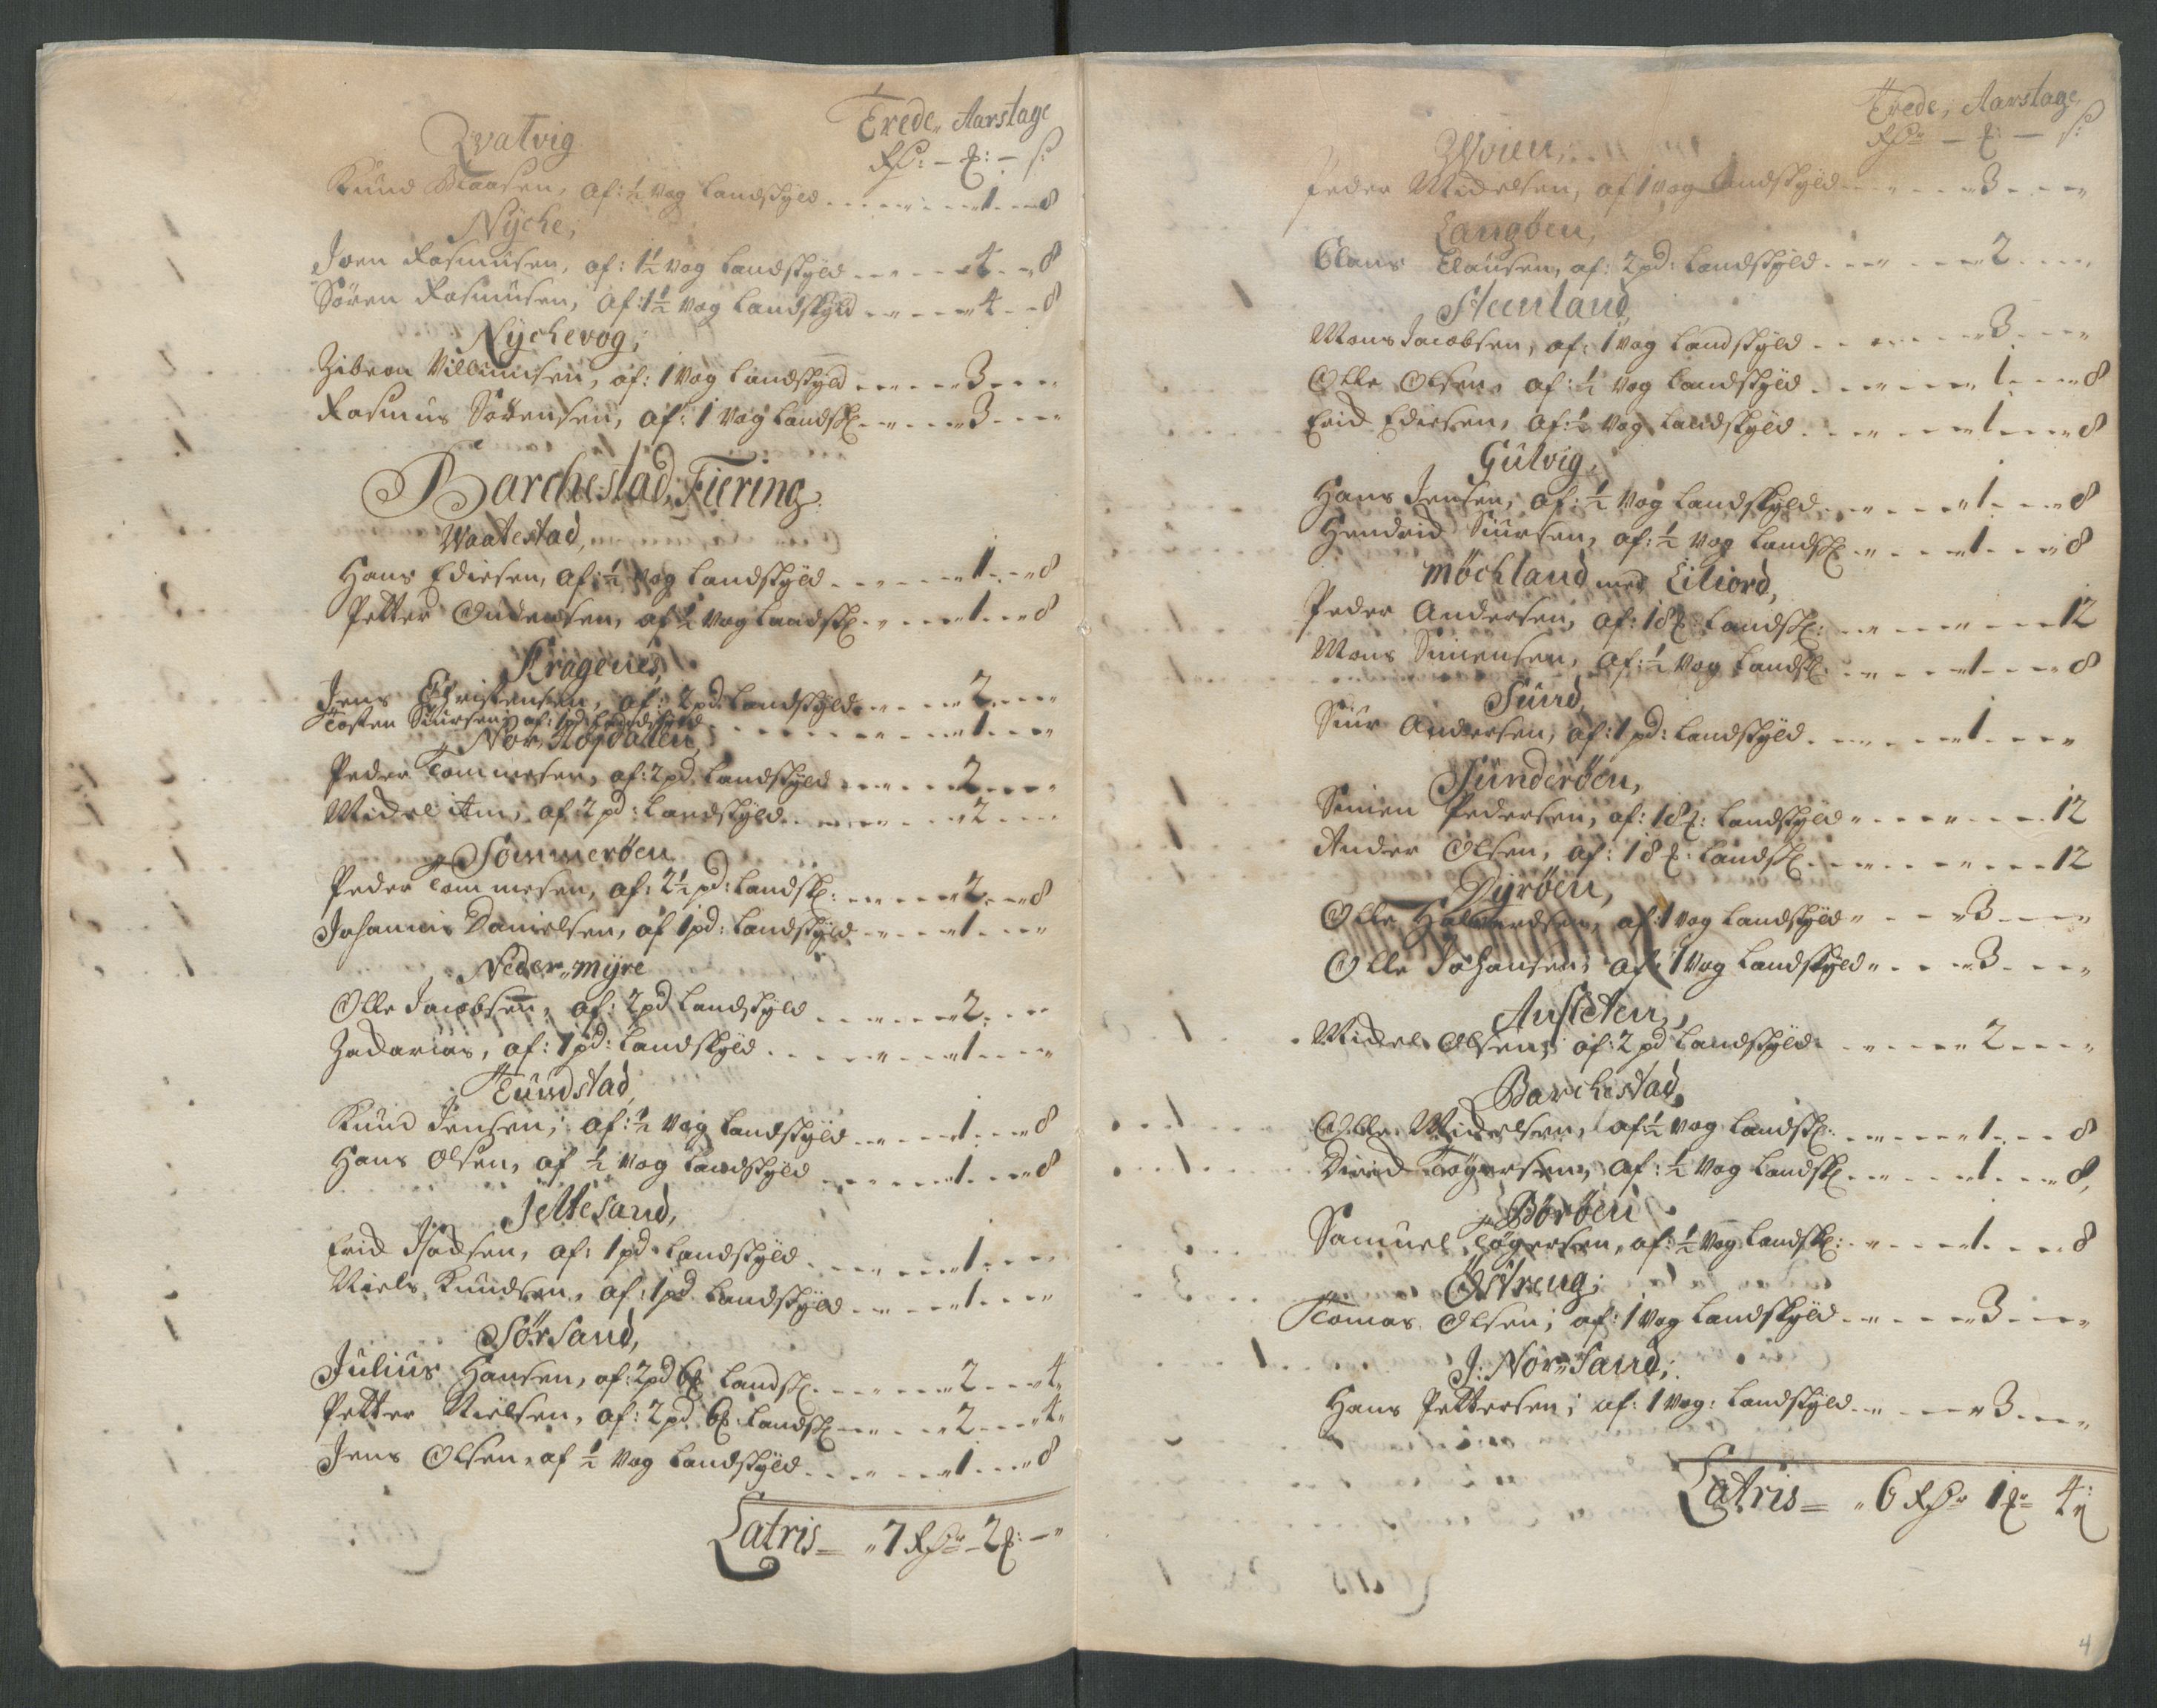 Trede, Aarstage
Rdr: – ƺ: – s:
Qvalvig
Knud Claasen, af: ½ Vog Landskyld 1 8
Nyche;
Iven Rasmusen, af: 1½ Vog Landskyld 4 8
Søren Rasmusen, af: 1½ Vog Landskyld 4 8
Nychevog;
Zibron Villumsen, af: 1 Vog Landskyld 3
Rasmus Sørensen, af: 1 Vog Landsk: 3
Barchestad, Fiering
Waatestad,
Hans Edisen, af: ½ Vog Landskyld 1 8
Petter Andersen, af ½ Vog Landsk: 1 8
Kragenes,
Jens Christensen, af: 2 pd: Landskyld 2
Tosten Siursen, af: 1 pd: Landskyld 1
Nor, Højdallen,
Peder Tommesen, af: 2 pd. Landskyld 2
Michel itm, af 2 pd: Landskyld 2
Sommerøen
Peder Tommesen, af: 2½ pd: Landsk: 2 8
Johannis Danielsen, af 1 pd: Landskyld 1
Neder, myre
Olle Jacobsen, af: 2 pd Landskyld 2
Zacharias, af: 1 pd: Landskyld 1
Tundstad,
Knud Jensen, af: ½ Vog Landskyld 1 8
Hans Olsen, af ½ Vog Landskyld 1 8
Jettesand,
Erich Isachsen, af: 1 pd Landskyld 1
Niels Knudsen, af: 1 pd Landskyld 1
Sør Sand,
Julius Hansen, af: 2 pd 6 ƺ Landsk: 2 4
Petter Nielsen, af: 2 pd 6 ƺ: Landsk: 2 4
Jens Olsen, af ½ Vog Landskyld 1 8
Latris = 7 Rdr – 2 ƺ: –
Trede, Aarstage
Rdr – ƺ: – s:
Peder Michelsen, af 1 Vog Landskyld 3
Langøen,
Claus Clausen, af: 2 pd: Landskyld 2
Steenland,
Mons Jacobsen, af: 1 Vog Landskyld 3
Olle Olsen, af: ½ Vog Landskyld 1 8
Erich Edisen, af: ½ Vog Landskyld 1 8
Gulvig,
Hans Jensen, af: ½ Vog Landskyld 1 8
Hendrich Siursen, af: ½ Vog Landsk: 1 8
Møchland med Liliord,
Peder Andersen, af: 18 ƺ: Landsk: 12
Mons Simensen, af: ½ Vog Landsk: 1 8
Sund,
Siur Andersen, af: 1 pd: Landskyld 1
Sunderøen,
Simen Pedersen, af: 18 ƺ: Landskyld 12
Ander Olsen, af: 18 ƺ: Landsk: 12
Dyrøen,
Olle Halvardsen, af: 1 Vog Landskyld 3
Olle Johansen, af: 1 Vog Landskyld 3
Ansteten,
Michel Olsen, af: 2 pd Landskyld 2
Barchestad,
Olle Michelsen, af ½ Vog Landsk: 1 8
Dirich Tøgersen, af: ½ Vog Landsk: 1 8
Børøen
Samuel Tøgersen, af: ½ Vog Landsk: 1 8
Østreng;
Tomas Olsen, af: 1 Vog Landskyld 3
I: Nor, Sand;
Hans Pettersen; af: 1 Vog: Landskyld 3
Latris = 6 Rdr 1 ƺ 4:
4